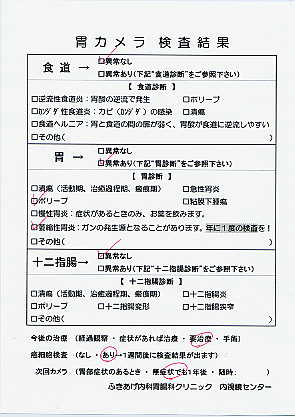 胃カメラ 検査結果
食道 → □異常なし
□異常あり(下記"食道診断"をご参照下さい)
【 食道診断 】
□逆流性食道炎：胃酸の逆流で発生 □ポリープ
□カンジダ性食道炎：カビ(カンジダ)の感染 □潰瘍
□食道ヘルニア：胃と食道の間の筋が弱く、胃酸が食道に逆流しやすい
□その他( )
胃 → □異常なし
□異常あり(下記"胃診断"をご参照下さい)
【 胃診断 】
□潰瘍(活動期、治癒過程期、瘢痕期) □急性胃炎
□ポリープ □粘膜下腫瘍
□慢性胃炎：症状があるときのみ、お薬を飲みます。
□萎縮性胃炎：ガンの発生源となることがあります。年に1度の検査を！
□その他( )
十二指腸 → □異常なし
□異常あり(下記"十二指腸診断"をご参照下さい)
【 十二指腸診断 】
□潰瘍(活動期、治癒過程期、瘢痕期) □十二指腸炎
□ポリープ □十二指腸変形 □十二指腸狭窄
□その他( )
今後の治療 (経過観察・症状があれば治療・要治療・手術)
癌細胞検査 (なし・あり→1週間後に検査結果が出ます)
次回カメラ (胃部症状のあるとき・無症状でも1年後・随時: )
ふきあげ内科胃腸科クリニック 内視鏡センター